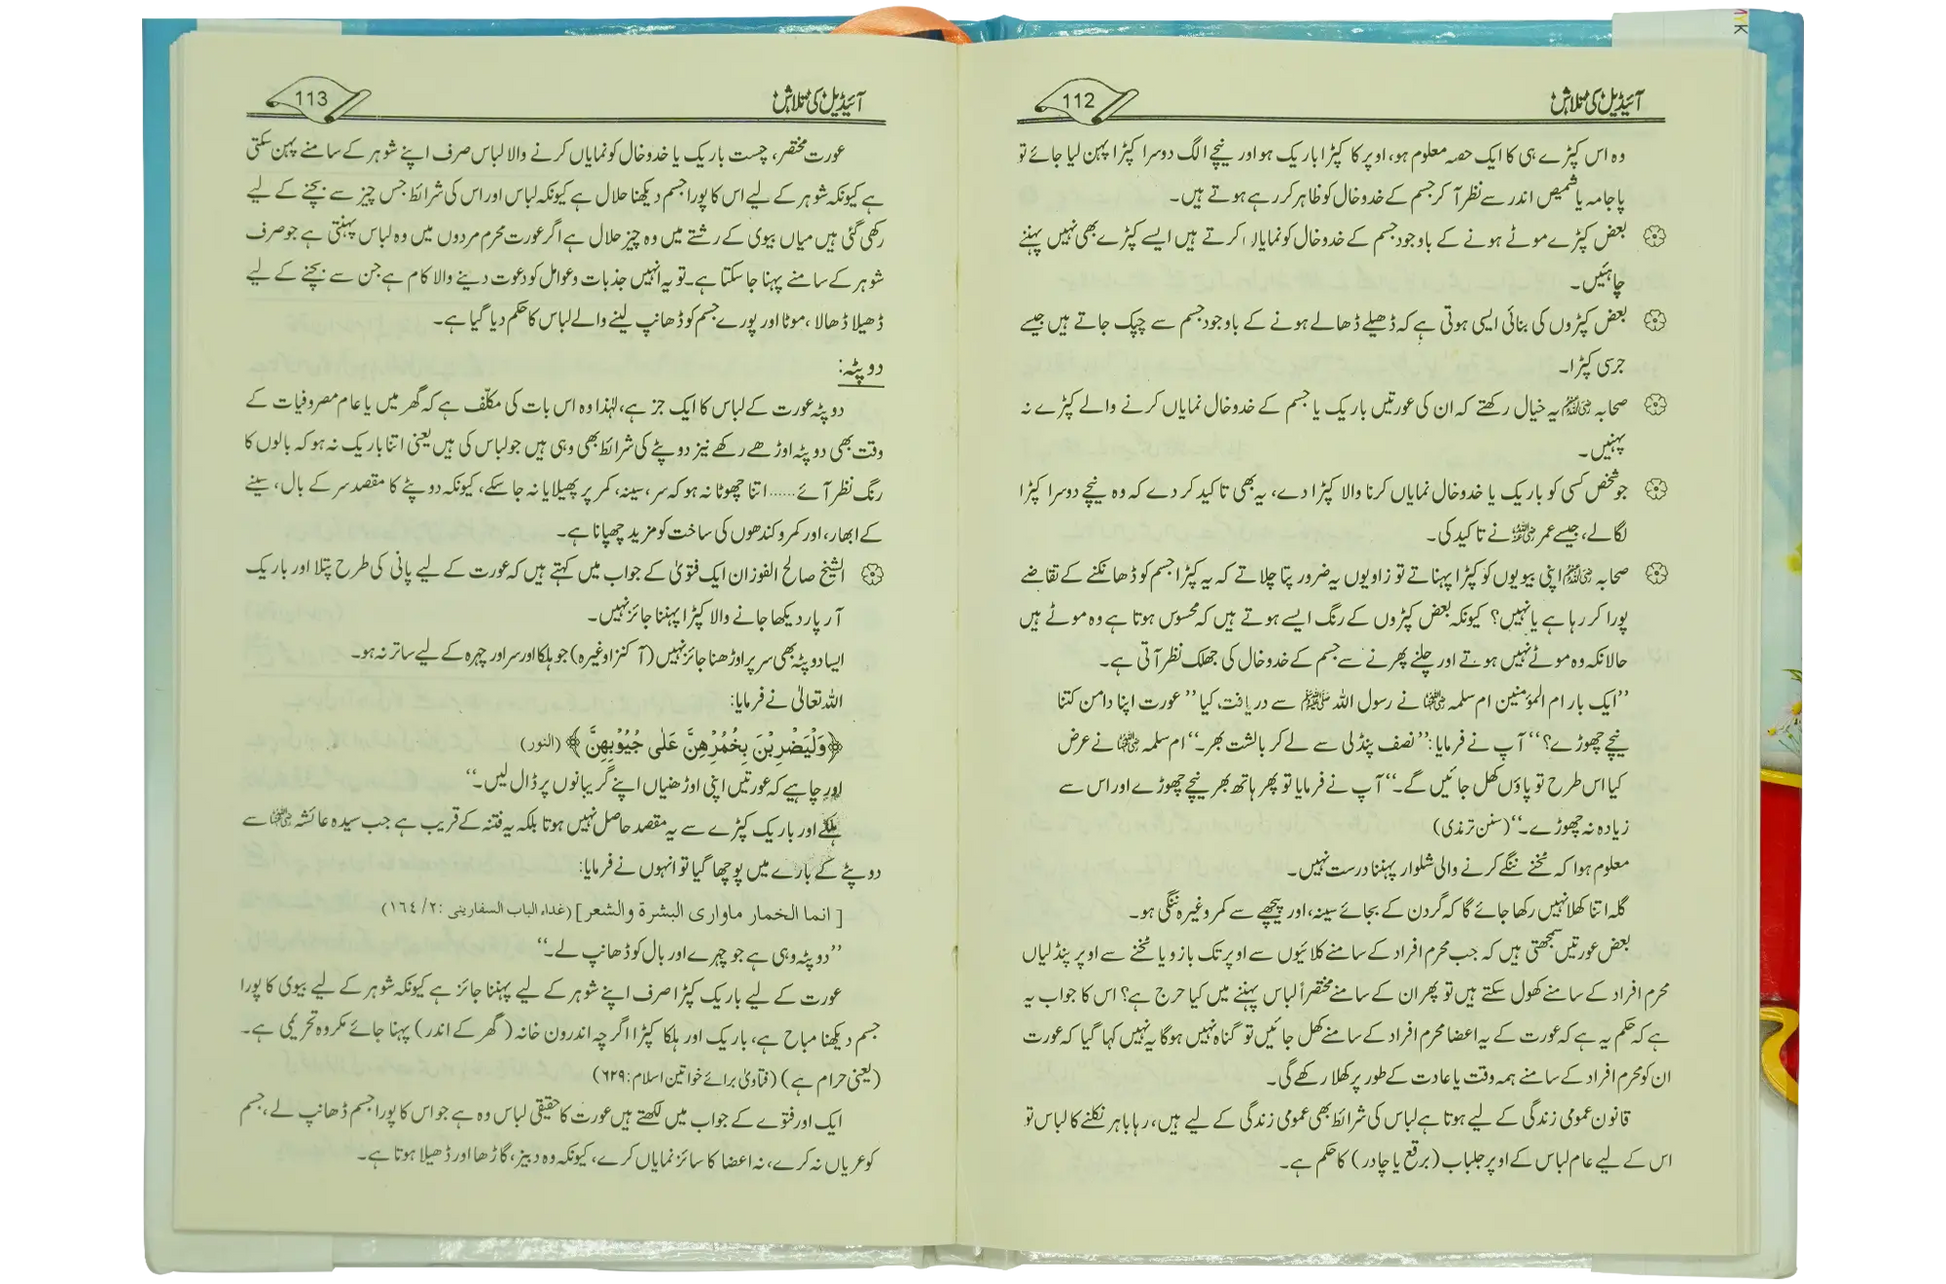 آئیڈیل کی تلاش 112
وہ اس کپڑے ہی کا ایک حصہ معلوم ہو، اوپر کا کپڑا باریک ہو اور نیچے الگ دوسرا کپڑا پہن لیا جائے تو
پاجامہ یا شمیص اندر سے نظر آ کر جسم کے خدوخال کو ظاہر کر رہے ہوتے ہیں۔
بعض کپڑے موٹے ہونے کے باوجود جسم کے خدوخال کو نمایاں کرتے ہیں ایسے کپڑے بھی نہیں پہننے
چاہئیں۔
بعض کپڑوں کی بنائی ایسی ہوتی ہے کہ ڈھیلے ڈھالے ہونے کے باوجود جسم سے چپک جاتے ہیں جیسے
جرسی کپڑا۔
صحابہ رضی اللہ عنہم یہ خیال رکھتے کہ ان کی عورتیں باریک یا جسم کے خدوخال نمایاں کرنے والے کپڑے نہ
پہنیں۔
جو شخص کسی کو باریک یا خدوخال نمایاں کرنا والا کپڑا دے، یہ بھی تاکید کر دے کہ وہ نیچے دوسرا کپڑا
لگا لے، جیسے عمر رضی اللہ عنہ نے تاکید کی۔
صحابہ رضی اللہ عنہم اپنی بیویوں کو کپڑا پہناتے تو زاویوں یہ ضرور پتا چلاتے کہ یہ کپڑا جسم کو ڈھانکنے کے تقاضے
پورا کر رہا ہے یا نہیں؟ کیونکہ بعض کپڑوں کے رنگ ایسے ہوتے ہیں کہ محسوس ہوتا ہے وہ موٹے ہیں
حالانکہ وہ موٹے نہیں ہوتے اور چلنے پھرنے سے جسم کے خدوخال کی جھلک نظر آتی ہے۔
’’ایک بار ام المؤمنین ام سلمہ رضی اللہ عنہا نے رسول اللہ ﷺ سے دریافت کیا ’’عورت اپنا دامن کتنا
نیچے چھوڑے؟‘‘ آپ نے فرمایا: ’’نصف پنڈلی سے لے کر بالشت بھر۔‘‘ ام سلمہ رضی اللہ عنہا نے عرض
کیا اس طرح تو پاؤں کھل جائیں گے۔‘‘ آپ نے فرمایا تو پھر ہاتھ بھر نیچے چھوڑے اور اس سے
زیادہ نہ چھوڑے۔‘‘ (سنن ترمذی)
معلوم ہوا کہ ٹخنے ننگے کرنے والی شلوار پہننا درست نہیں۔
گلہ اتنا کھلا نہیں رکھا جائے گا کہ گردن کے بجائے سینہ، اور پیچھے سے کمر وغیرہ ننگی ہو۔
بعض عورتیں سمجھتی ہیں کہ جب محرم افراد کے سامنے کلائیوں سے اوپر تک بازو یا ٹخنے سے اوپر پنڈلیاں
محرم افراد کے سامنے کھول سکتے ہیں تو پھر ان کے سامنے مختصراً لباس پہننے میں کیا حرج ہے؟ اس کا جواب یہ
ہے کہ حکم یہ ہے کہ عورت کے یہ اعضا محرم افراد کے سامنے کھل جائیں تو گناہ نہیں ہوگا یہ نہیں کہا گیا کہ عورت
ان کو محرم افراد کے سامنے ہمہ وقت یا عادت کے طور پر کھلا رکھے گی۔
قانون عمومی زندگی کے لیے ہوتا ہے لباس کی شرائط بھی عمومی زندگی کے لیے ہیں، رہا باہر نکلنے کا لباس تو
اس کے لیے عام لباس کے اوپر جلباب (برقع یا چادر) کا حکم ہے۔
آئیڈیل کی تلاش 113
عورت مختصر، چست باریک یا خدوخال کو نمایاں کرنے والا لباس صرف اپنے شوہر کے سامنے پہن سکتی
ہے کیونکہ شوہر کے لیے اس کا پورا جسم دیکھنا حلال ہے کیونکہ لباس اور اس کی شرائط جس چیز سے بچنے کے لیے
رکھی گئی ہیں میاں بیوی کے رشتے میں وہ چیز حلال ہے اگر عورت محرم مردوں میں وہ لباس پہنتی ہے جو صرف
شوہر کے سامنے پہنا جا سکتا ہے۔ تو یہ انہیں جذبات وعوامل کو دعوت دینے والا کام ہے جن سے بچنے کے لیے
ڈھیلا ڈھالا، موٹا اور پورے جسم کو ڈھانپ لینے والے لباس کا حکم دیا گیا ہے۔
دوپٹہ:
دوپٹہ عورت کے لباس کا ایک جز ہے، لہٰذا وہ اس بات کی مکلّف ہے کہ گھر میں یا عام مصروفیات کے
وقت بھی دوپٹہ اوڑھے رکھے نیز دوپٹے کی شرائط بھی وہی ہیں جو لباس کی ہیں یعنی اتنا باریک نہ ہو کہ بالوں کا
رنگ نظر آئے...... اتنا چھوٹا نہ ہو کہ سر، سینہ، کمر پر پھیلایا نہ جا سکے، کیونکہ دوپٹے کا مقصد سر کے بال، سینے
کے ابھار، اور کمر و کندھوں کی ساخت کو مزید چھپانا ہے۔
الشیخ صالح الفوزان ایک فتویٰ کے جواب میں کہتے ہیں کہ عورت کے لیے پانی کی طرح پتلا اور باریک
آر پار دیکھا جانے والا کپڑا پہننا جائز نہیں۔
ایسا دوپٹہ بھی سر پر اوڑھنا جائز نہیں (آکنزا وغیرہ) جو ہلکا اور سر اور چہرہ کے لیے ساتر نہ ہو۔
اللہ تعالیٰ نے فرمایا:
﴿وَلْيَضْرِبْنَ بِخُمُرِهِنَّ عَلٰى جُيُوْبِهِنَّ﴾ (النور)
اور چاہیے کہ عورتیں اپنی اوڑھنیاں اپنے گریبانوں پر ڈال لیں۔‘‘
ہلکے اور باریک کپڑے سے یہ مقصد حاصل نہیں ہوتا بلکہ یہ فتنہ کے قریب ہے جب سیدہ عائشہ رضی اللہ عنہا سے
دوپٹے کے بارے میں پوچھا گیا تو انہوں نے فرمایا:
[انما الخمار ماواری البشرة والشعر] (غذاء الباب السفارینی: ٢/ ١٦٤)
’’دوپٹہ وہی ہے جو چہرے اور بال کو ڈھانپ لے۔‘‘
عورت کے لیے باریک کپڑا صرف اپنے شوہر کے لیے پہننا جائز ہے کیونکہ شوہر کے لیے بیوی کا پورا
جسم دیکھنا مباح ہے، باریک اور ہلکا کپڑا اگرچہ اندرون خانہ (گھر کے اندر) پہنا جائے مکروہ تحریمی ہے۔
(یعنی حرام ہے) (فتاویٰ برائے خواتین اسلام: ۶۲۹)
ایک اور فتوے کے جواب میں لکھتے ہیں عورت کا حقیقی لباس وہ ہے جو اس کا پورا جسم ڈھانپ لے، جسم
کو عریاں نہ کرے، نہ اعضا کا سائز نمایاں کرے، کیونکہ وہ دبیز، گاڑھا اور ڈھیلا ہوتا ہے۔